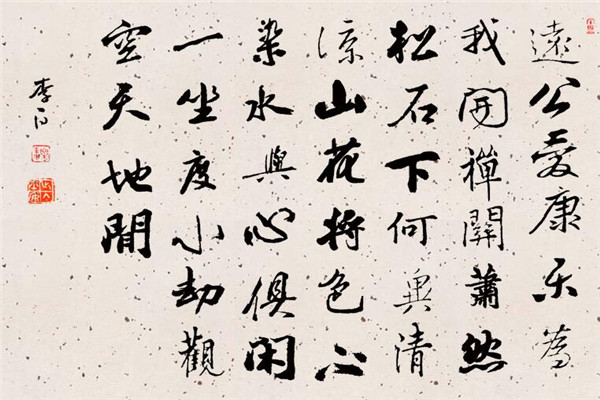 遠公愛康乐為
我開禪關蕭然
松石下何異清
涼山花將色不
染水與心俱閑
一坐度小劫觀
空天地間
李白